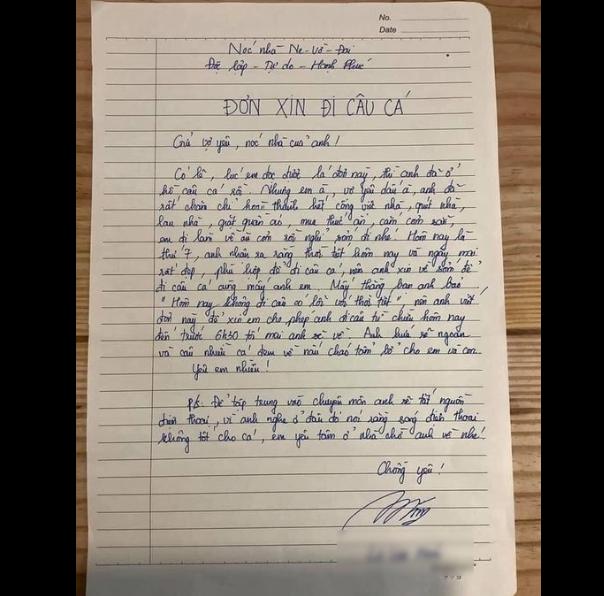 No.
Date
Nóc nhà Ne-Vờ-Đai
Độc lập - Tự do - Hạnh Phúc
ĐƠN XIN ĐI CÂU CÁ
Gửi vợ yêu, nóc nhà của anh!
Có lẽ, lúc em đọc được lá đơn này, thì anh đã ở
hồ câu cá rồi. Nhưng em à, vợ yêu dấu à, anh đã
rất chăm chỉ hoàn thành hết công việc nhà, quét nhà,
lau nhà, giặt quần áo, mua thức ăn, cắm cơm sẵn
em đi làm về ăn cơm rồi nghỉ sớm đi nhé. Hôm nay là
thứ 7, anh nhận ra rằng thời tiết hôm nay và ngày mai
rất đẹp, phù hợp để đi câu cá, nên anh xin về sớm để
đi câu cá cùng mấy anh em. Mấy thằng bạn anh bảo
"Hôm nay không đi câu có lỗi với thời tiết", nên anh viết
đơn này để xin em cho phép anh đi câu từ chiều hôm nay
đến trước 6h30 tối mai anh sẽ về. Anh hứa sẽ ngoan
và câu nhiều cá đem về nấu cháo tẩm bổ cho em và con.
Yêu em nhiều!
P/s: Để tập trung vào chuyên môn anh sẽ tắt nguồn
điện thoại, vì anh nghe ở đâu đó nói rằng sóng điện thoại
không tốt cho cá, em yên tâm ở nhà chờ anh về nhé!
Chồng yêu!